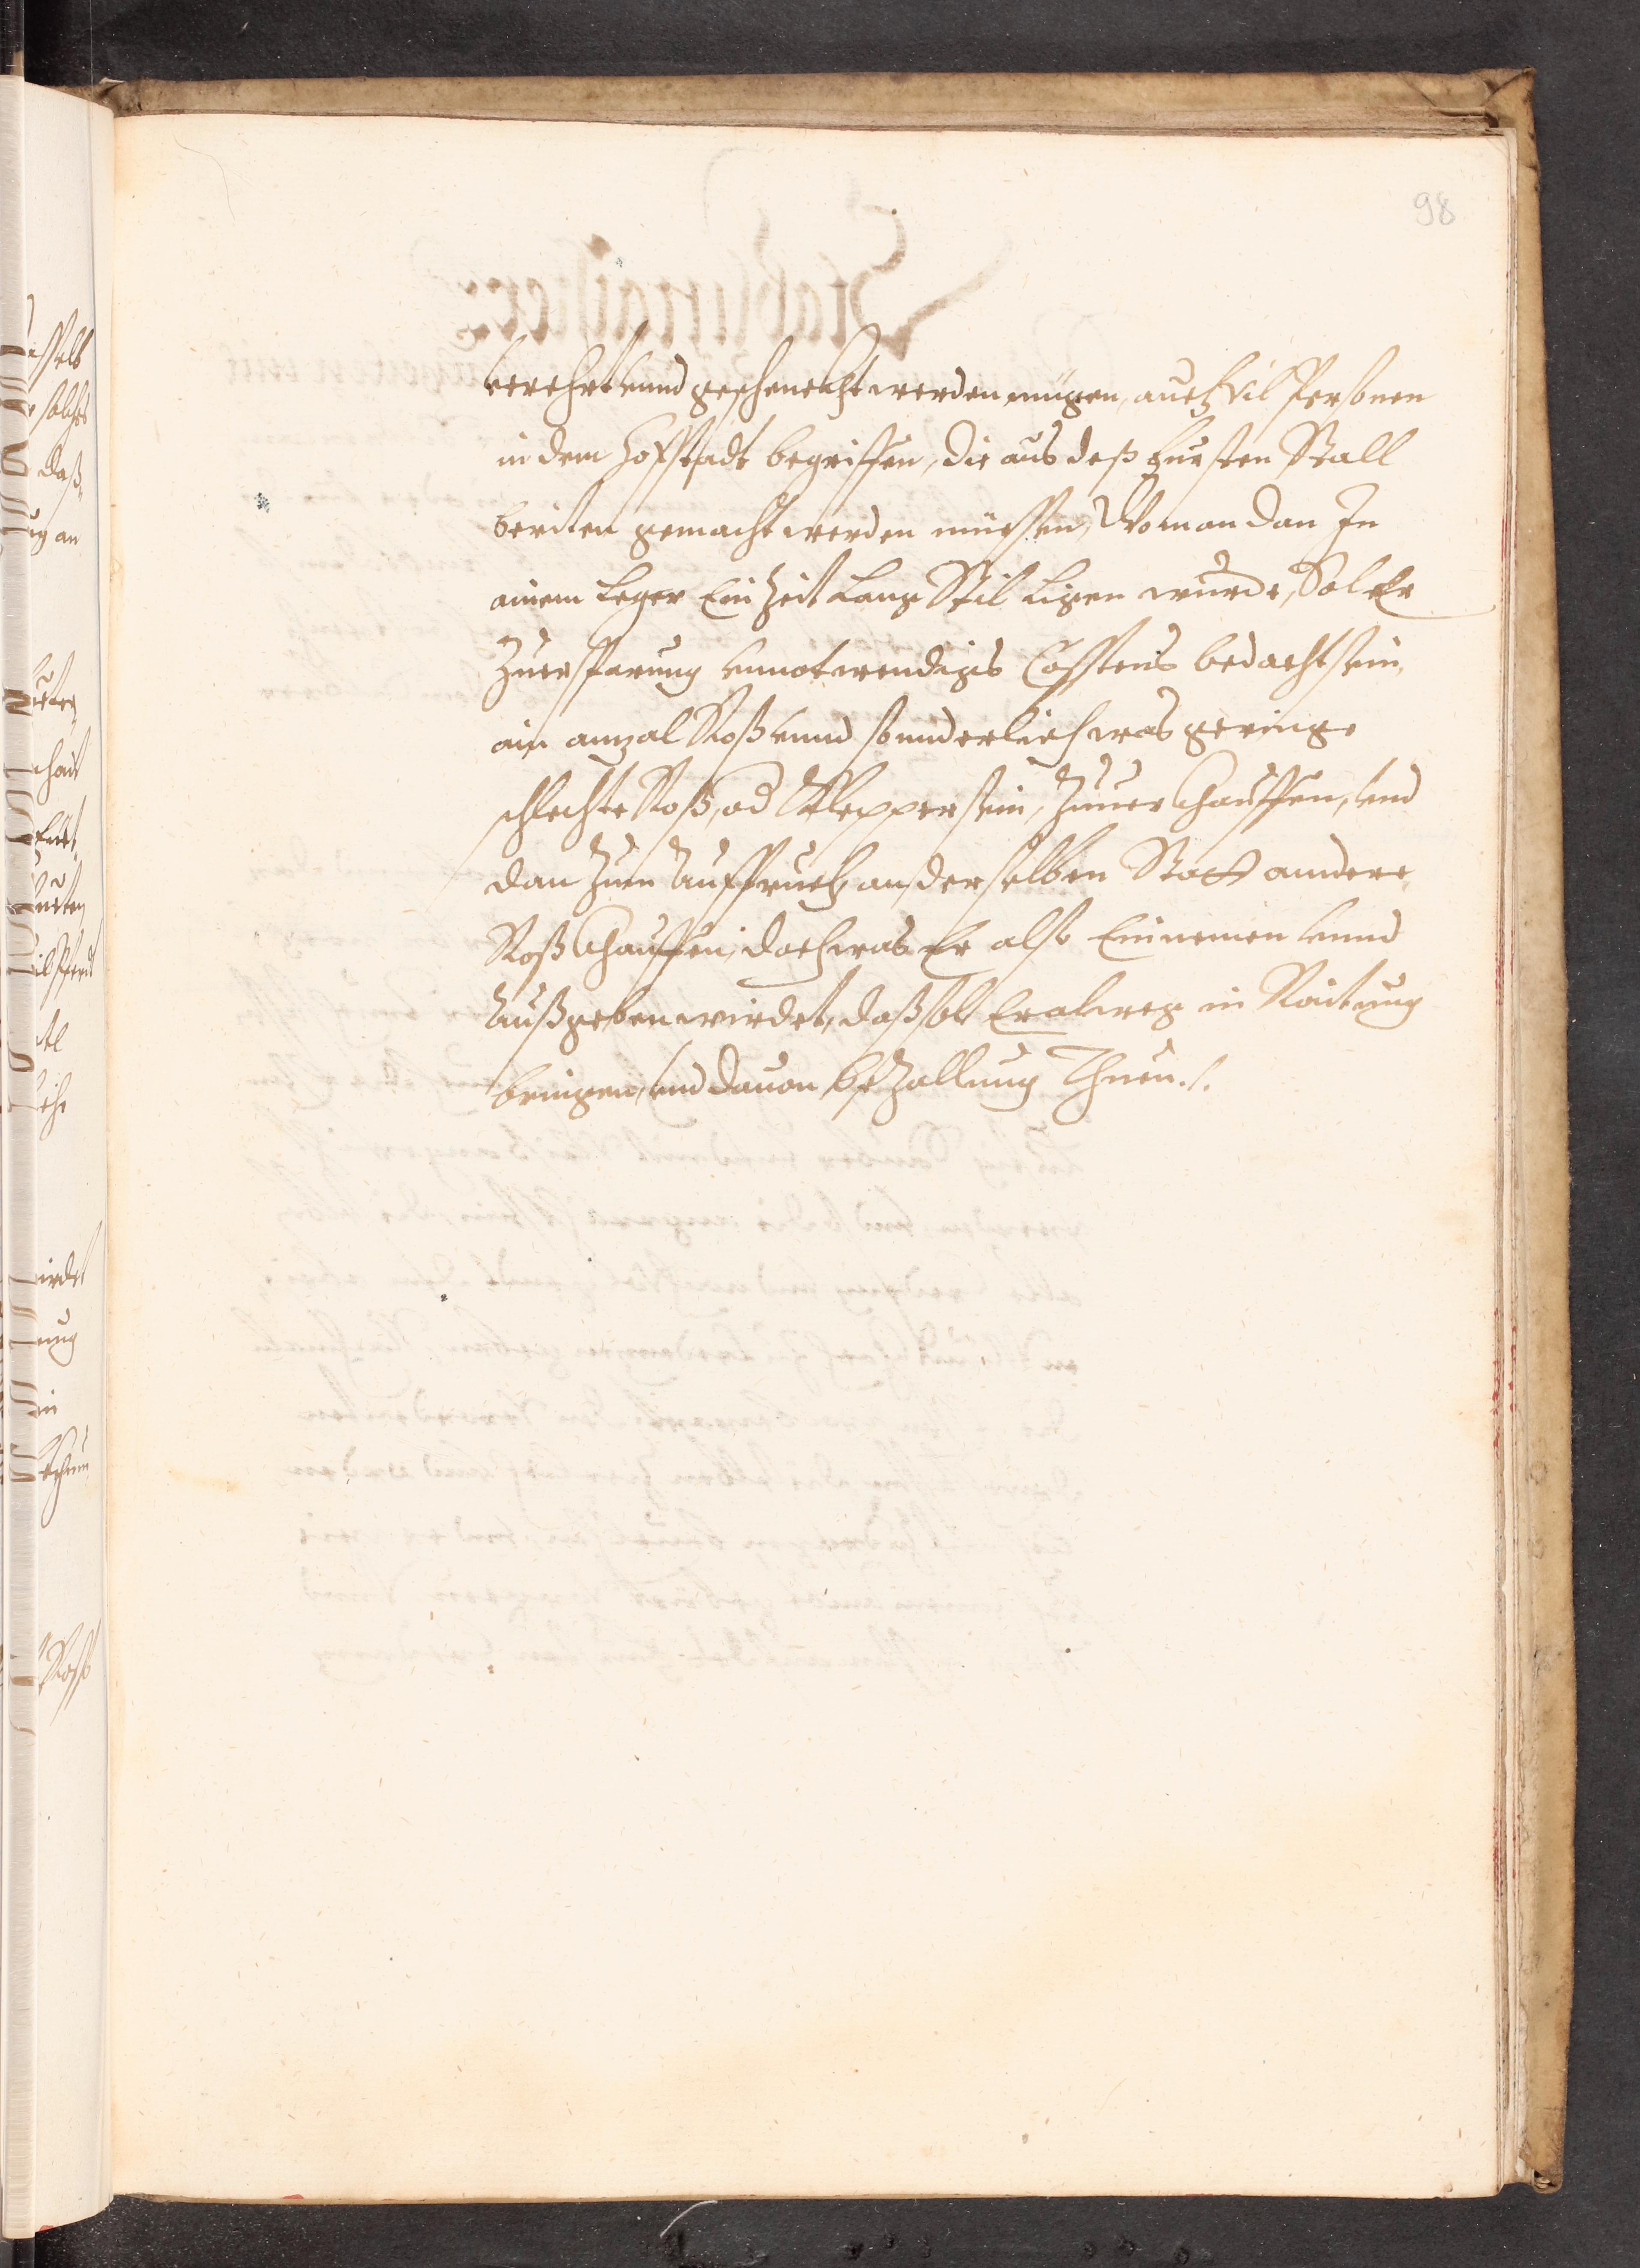 98
verehrt vnnd geschenckht werden mügen, auch vil Personen
in dem Hoffstadt begriffen, die aus deß Fursten Stall
beriten gemacht werden müessen, Wo man dan In
ainem Leger Ein Zeit Lang Stil Ligen wurde, Sol Er
Zuersparung vnnotwendiges Costens bedacht sein,
ain anzal Roß vnnd sounderlich was geringe
schlechte Roß, od Klepper sein, Zuuerkhauffen, vnd
dan Zum Auffpruch an derselben Stat andere
Roß Khauffen, doch was Er also Einnemen vnnd
Außgeben wirdet, daß sol Er alweg in Raitung
bringen, vnd dauon bezallung Thuen ./.